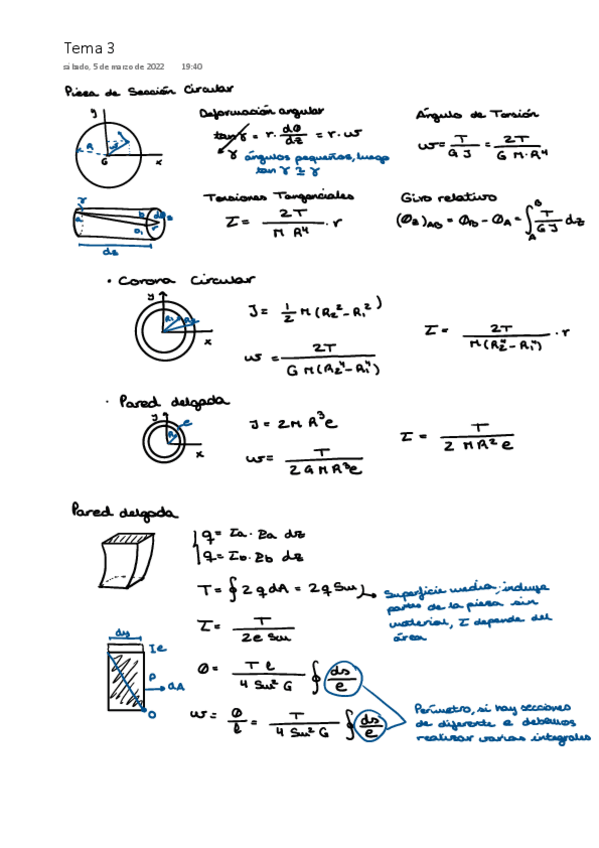 Tema 3
sábado, 5 de marzo de 2022 19:40
Pieza de Sección Circular
y
R
r
G
x
Deformación angular
tan γ = r · dθ/dz = r · ω
γ ángulos pequeños, luego
tan γ ≅ γ
Ángulo de Torsión
ω = T/(G J) = 2T/(G π · R⁴)
dz
Tensiones Tangenciales
τ = 2T/(π R⁴) · r
Giro relativo
(θz)AB = θB - θA = ∫ᴬᴮ T/(G J) dz
· Corona Circular
y
R1
R2
x
J = 1/2 π (R2² - R1²)
ω = 2T/(G π (R2⁴ - R1⁴))
τ = 2T/(π (R2⁴ - R1⁴)) · r
· Pared delgada
y
e
R
x
J = 2π R³ e
ω = T/(2 G π R³ e)
τ = T/(2 π R² e)
Pared delgada
q = τa · ea dz
q = τb · eb dz
T = ∮ 2 q dA = 2 q Sm
Superficie media, incluye
partes de la pieza sin
material, τ depende del
área
τ = T/(2e Sm)
dy
I e
P
dA
O
θ = T l/(4 Sm² G) ∮ ds/e
ω = θ/l = T/(4 Sm² G) ∮ ds/e
Perímetro, si hay secciones
de diferente e debemos
realizar varias integrales